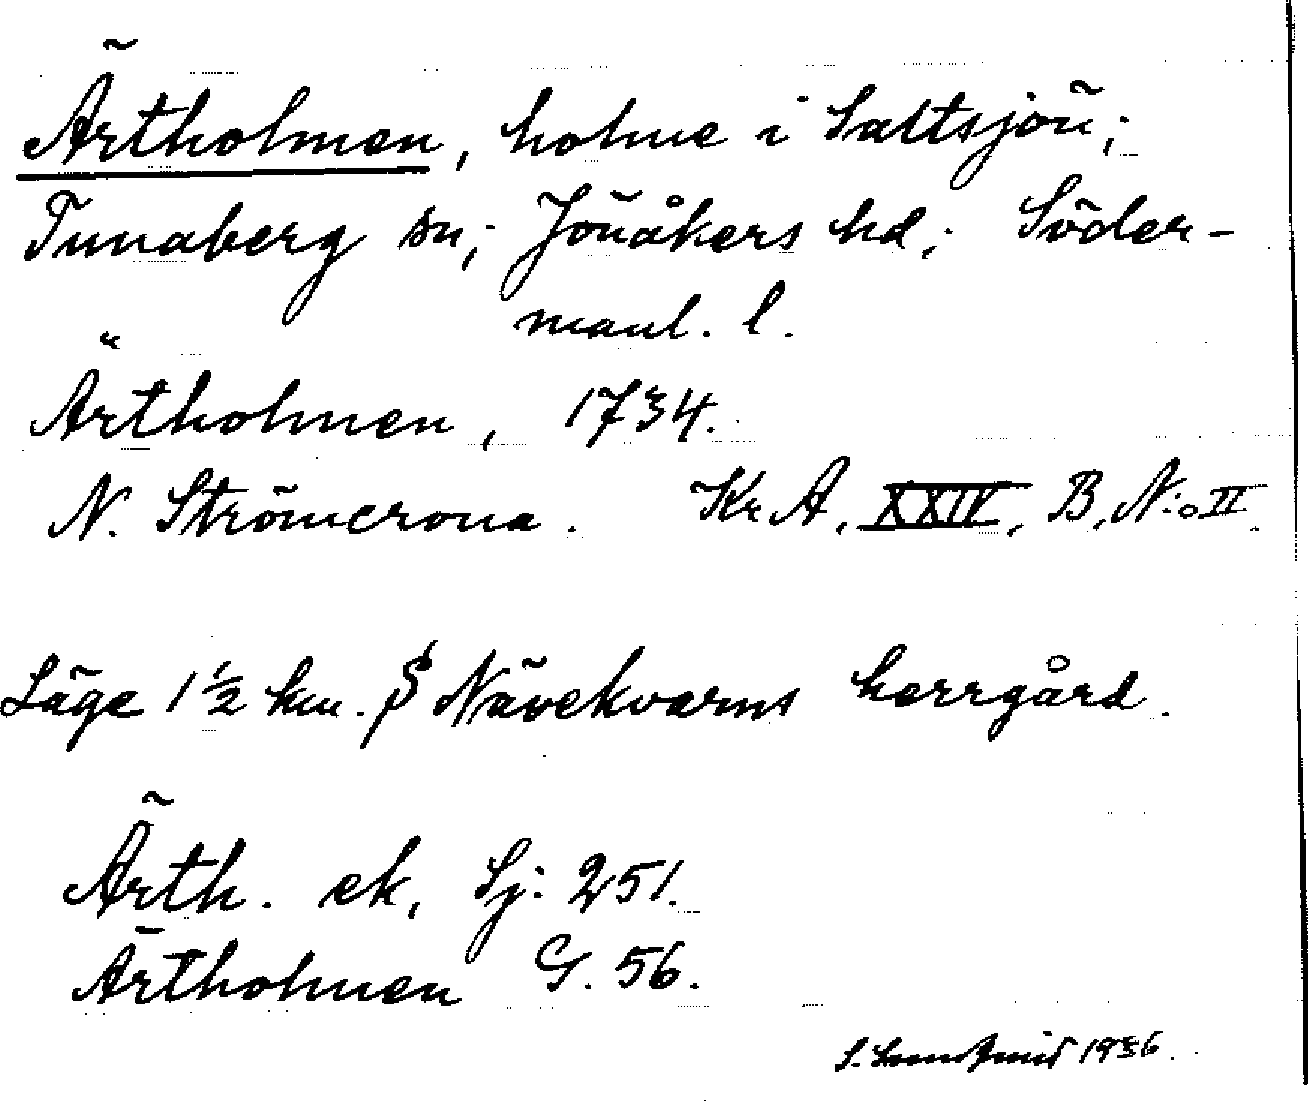 Ärtholmen, holme i Saltsjön;
Tunaberg sn; Jönåkers hd; Söder-
manl. l.
Ärtholmen, 1734.
N. Strömcrona. Kr. A. XXIV, B, N:o II.
Läge 1 1/2 km. S Nävekvarns herrgård.
Ärth. ek, Sj: 251.
Ärtholmen G. 56.
S. 1936.